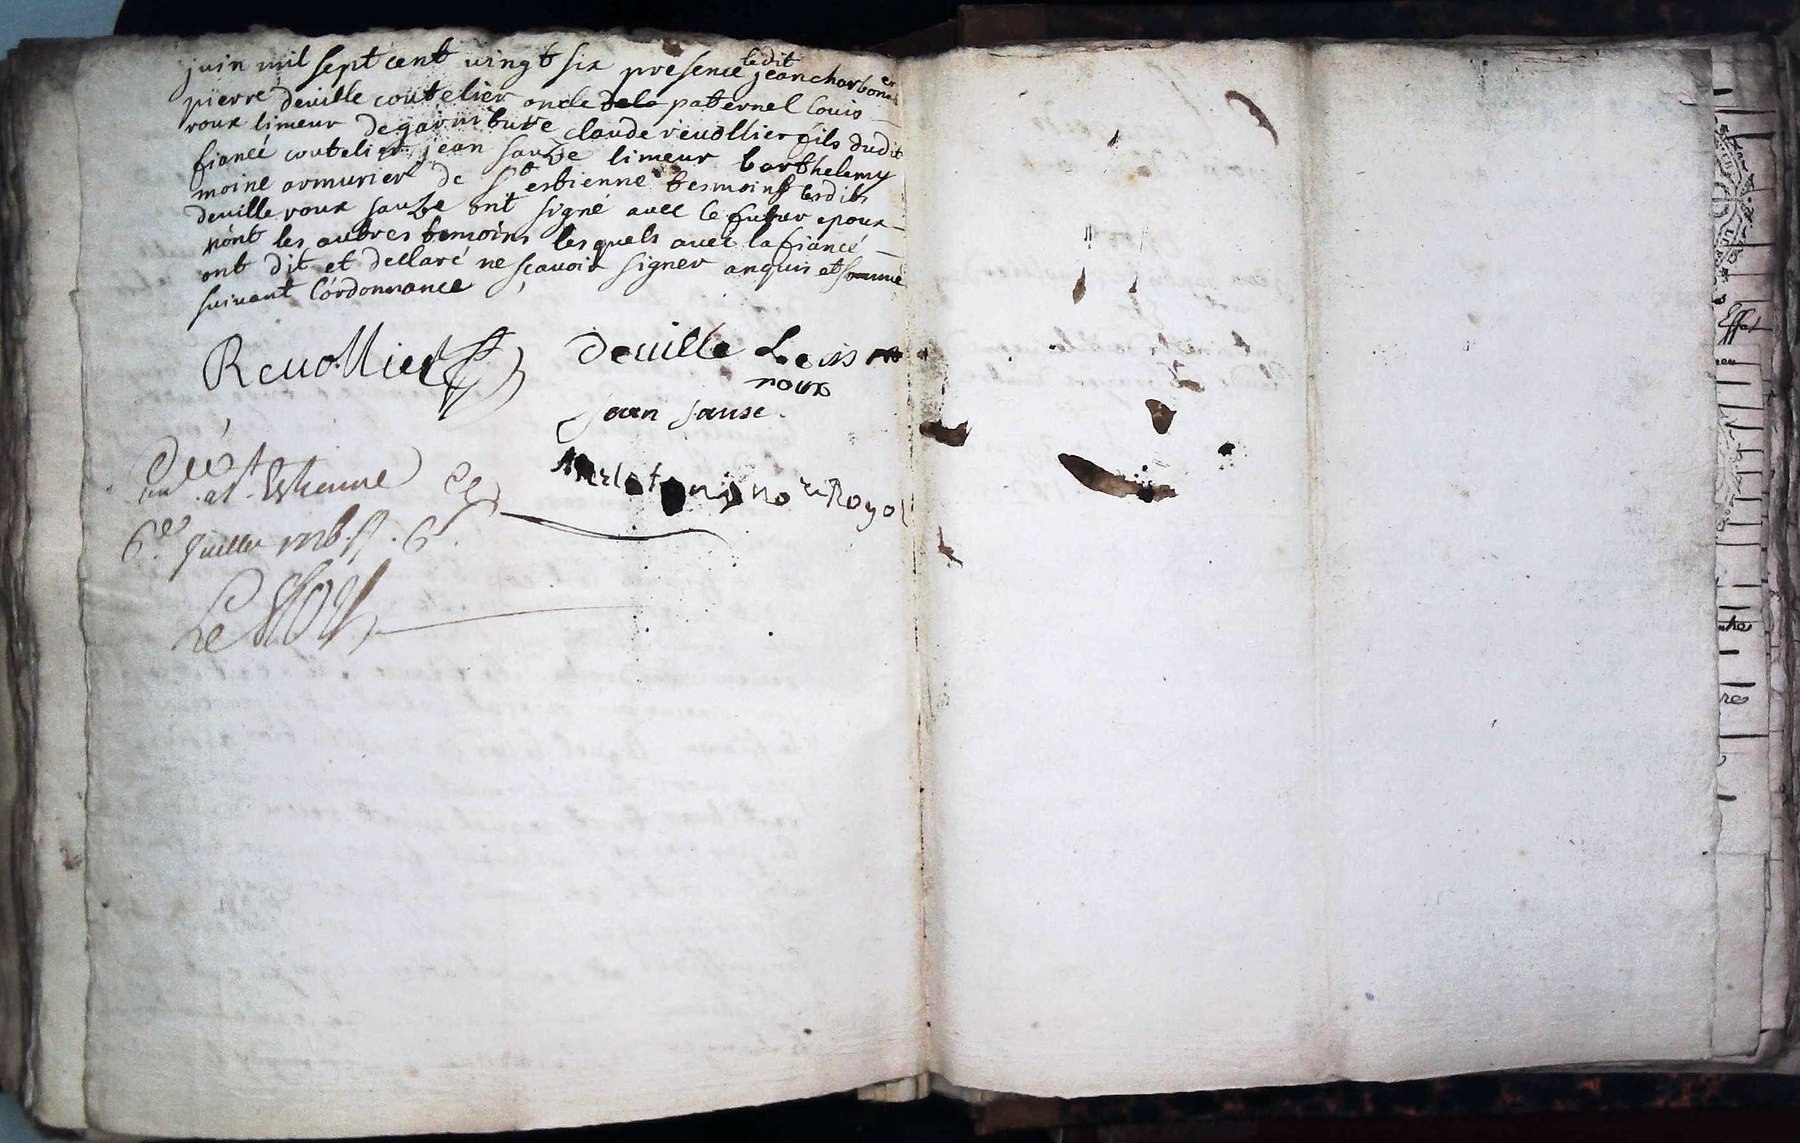 juin mil sept cent vingt six presence ledit jean charbon
pierre deville coutelier oncle dela paternel Louis
roux limeur de garniture claude revollier fils dudit
fiancé coutelier jean sauze limeur barthelemy
moine armurier de St estienne tesmoins lesdits
deville roux sauze ont signé avec le futur epoux
nont les autres temoins lesquels avec la fiancé
ont dit et declaré ne scavoir signer enquis et sommé
suivant l'ordonnance
Revollier deville Louis
roux
jean sause
notre Royal
st Etienne
6e Juillet